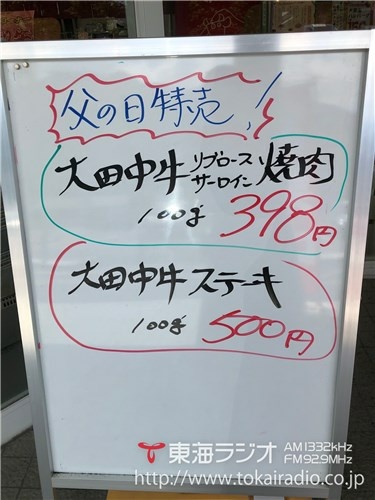 父の日特売!
大田中牛 リブロース サーロイン 焼肉
100g 398円
大田中牛ステーキ
100g 500円
東海ラジオ AM1332kHz FM92.9MHz
http://www.tokairadio.co.jp